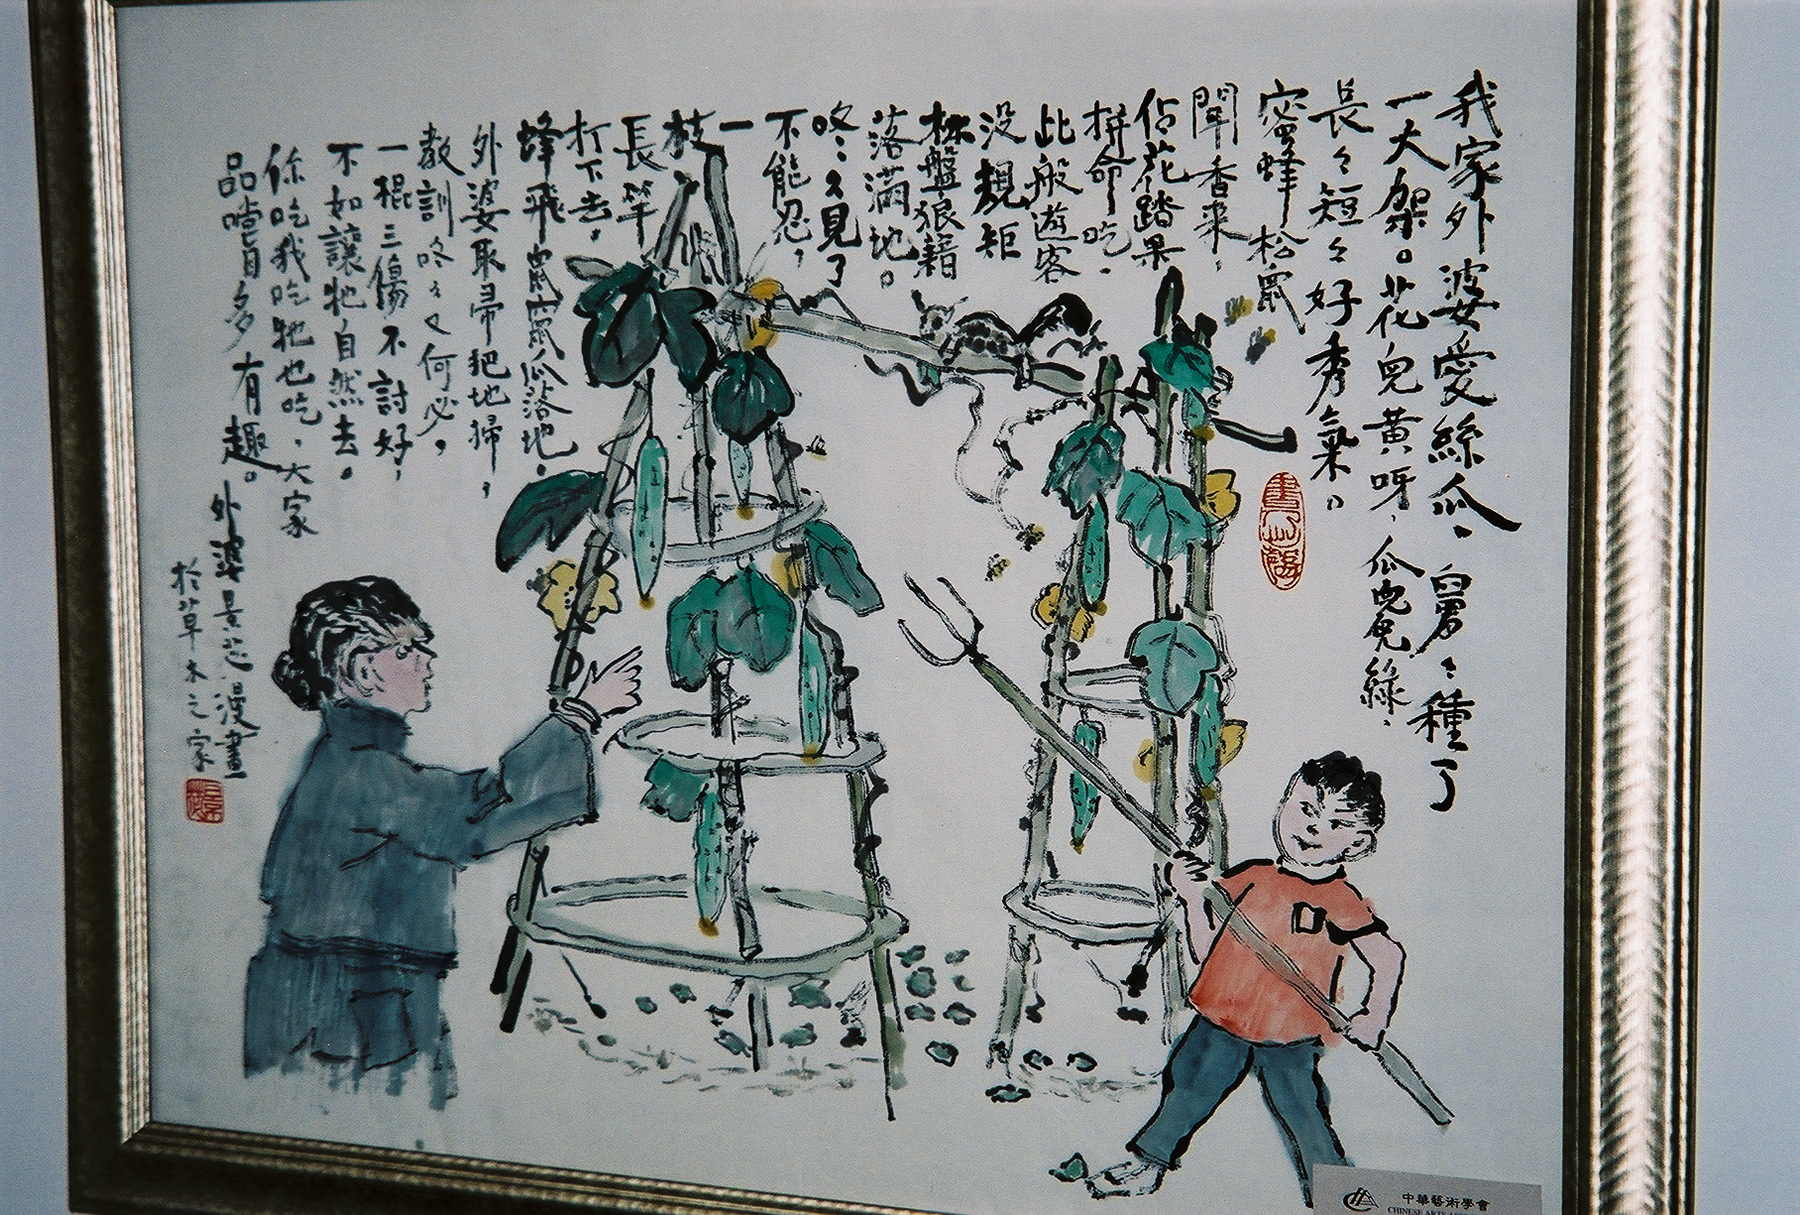 我家外婆愛絲瓜、舅舅種了
一大架。花兒黃呀、瓜兒綠、
長々短々好秀氣。
蜜蜂松鼠
聞香来，
佔花踏果
拼命吃．
此般遊客
没規矩
杯盤狼藉
落滿地。
咚々見了
不能忍，
一
枝
長竿
打下去，
蜂飛鼠竄瓜落地．
外婆取帚把地掃，
教訓咚々又何必，
一棍三傷不討好，
不如讓牠自然去。
你吃我吃牠也吃．大家
品嚐自多有趣。
外婆景
漫畫
於草木之家
中華藝術學會
CHINESE ARTS